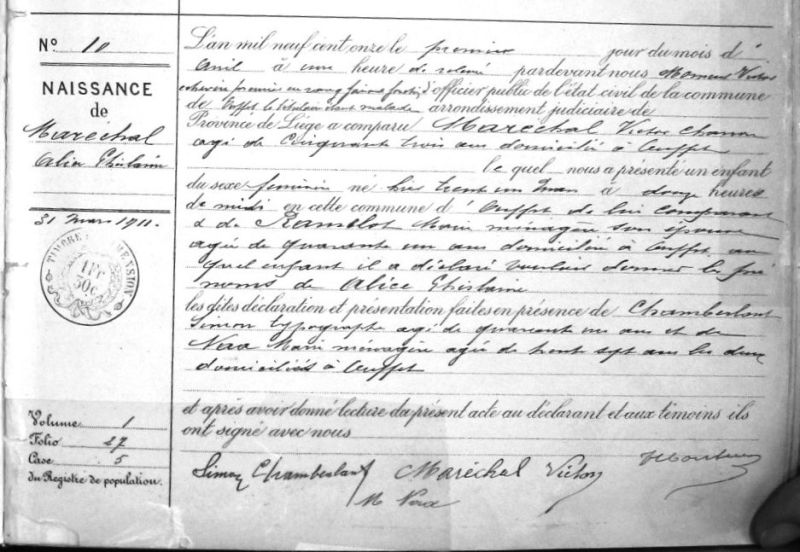 N° 10
NAISSANCE
de
Maréchal
Alice Ghislaine
31 mars 1911.
TIMBRE DE DIMENSION
1 FC
50 C
Volume 1
Folio 27
Case 5
du Registre de population.
L'an mil neuf cent onze le premier jour du mois d'
Avril à une heure de relevé pardevant nous Victor
échevin premier en rang faisant fonctions d'officier public de l'état civil de la commune
de Ouffet le titulaire étant malade arrondissement judiciaire de
Province de Liége a comparu Maréchal Victor
agé de Cinquante trois ans domicilié à Ouffet
lequel nous a présenté un enfant
du sexe feminin né hier trent un Mars à douze heures
de midi en cette commune d'Ouffet de lui comparant
& de Ramelot Marie ménagère son épouse
agée de quarante un ans domiciliée à Ouffet, au
quel enfant il a déclaré vouloir donner les pré
noms de Alice Ghislaine
les dites déclaration et présentation faites en présence de Chamberlant
Simon typographe agé de quarant un ans et de
Noxa Marie ménagère agée de trent sept ans les deux
domiciliés à Ouffet
et après avoir donné lecture du présent acte au déclarant et aux témoins ils
ont signé avec nous
Simon Chamberlant Maréchal Victor